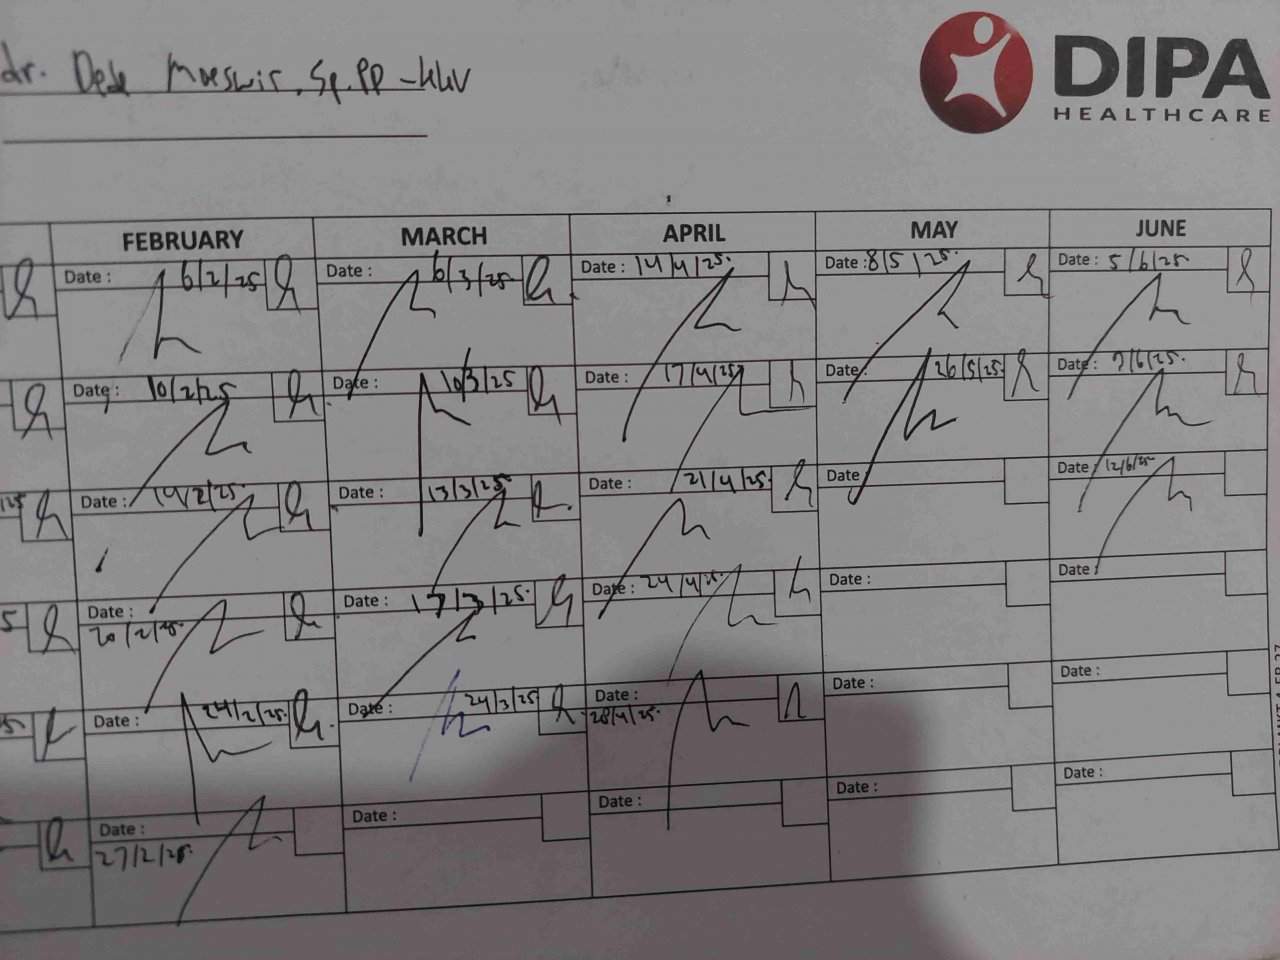 dr. Dede Moeswir, Sp.PD-KKV
DIPA
HEALTHCARE
FEBRUARY MARCH APRIL MAY JUNE
Date : 6/2/25 Date : 6/3/25 Date : 14/4/25. Date : 8/5/25. Date : 5/6/25.
Date : 10/2/25 Date : 10/3/25 Date : 17/4/25 Date : 26/5/25 Date : 9/6/25.
Date : 14/2/25. Date : 13/3/25 Date : 21/4/25. Date Date : 12/6/25
Date : Date : 17/3/25. Date : 24/4/25. Date : Date :
20/2/25.
Date : 24/2/25. Date : 24/3/25 Date : Date : Date :
28/4/25.
Date : Date : Date : Date : Date :
27/2/25.